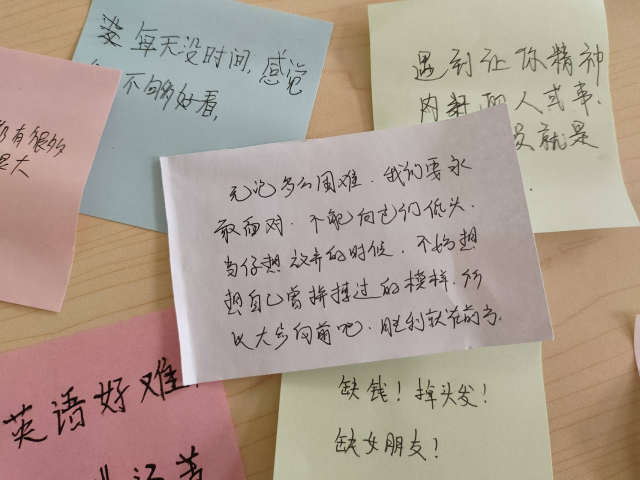 每天没时间,感觉
不够好看,
遇到让你精神
内耗的人或事.
就是
有很多
是大
无论多么困难.我们要永
敢面对.不能向它们低头.
当你想放弃的时候.不妨想
想自己曾拼搏过的模样.所
以大步向前吧.胜利就在前方.
英语好难.
缺钱!掉头发!
缺女朋友?